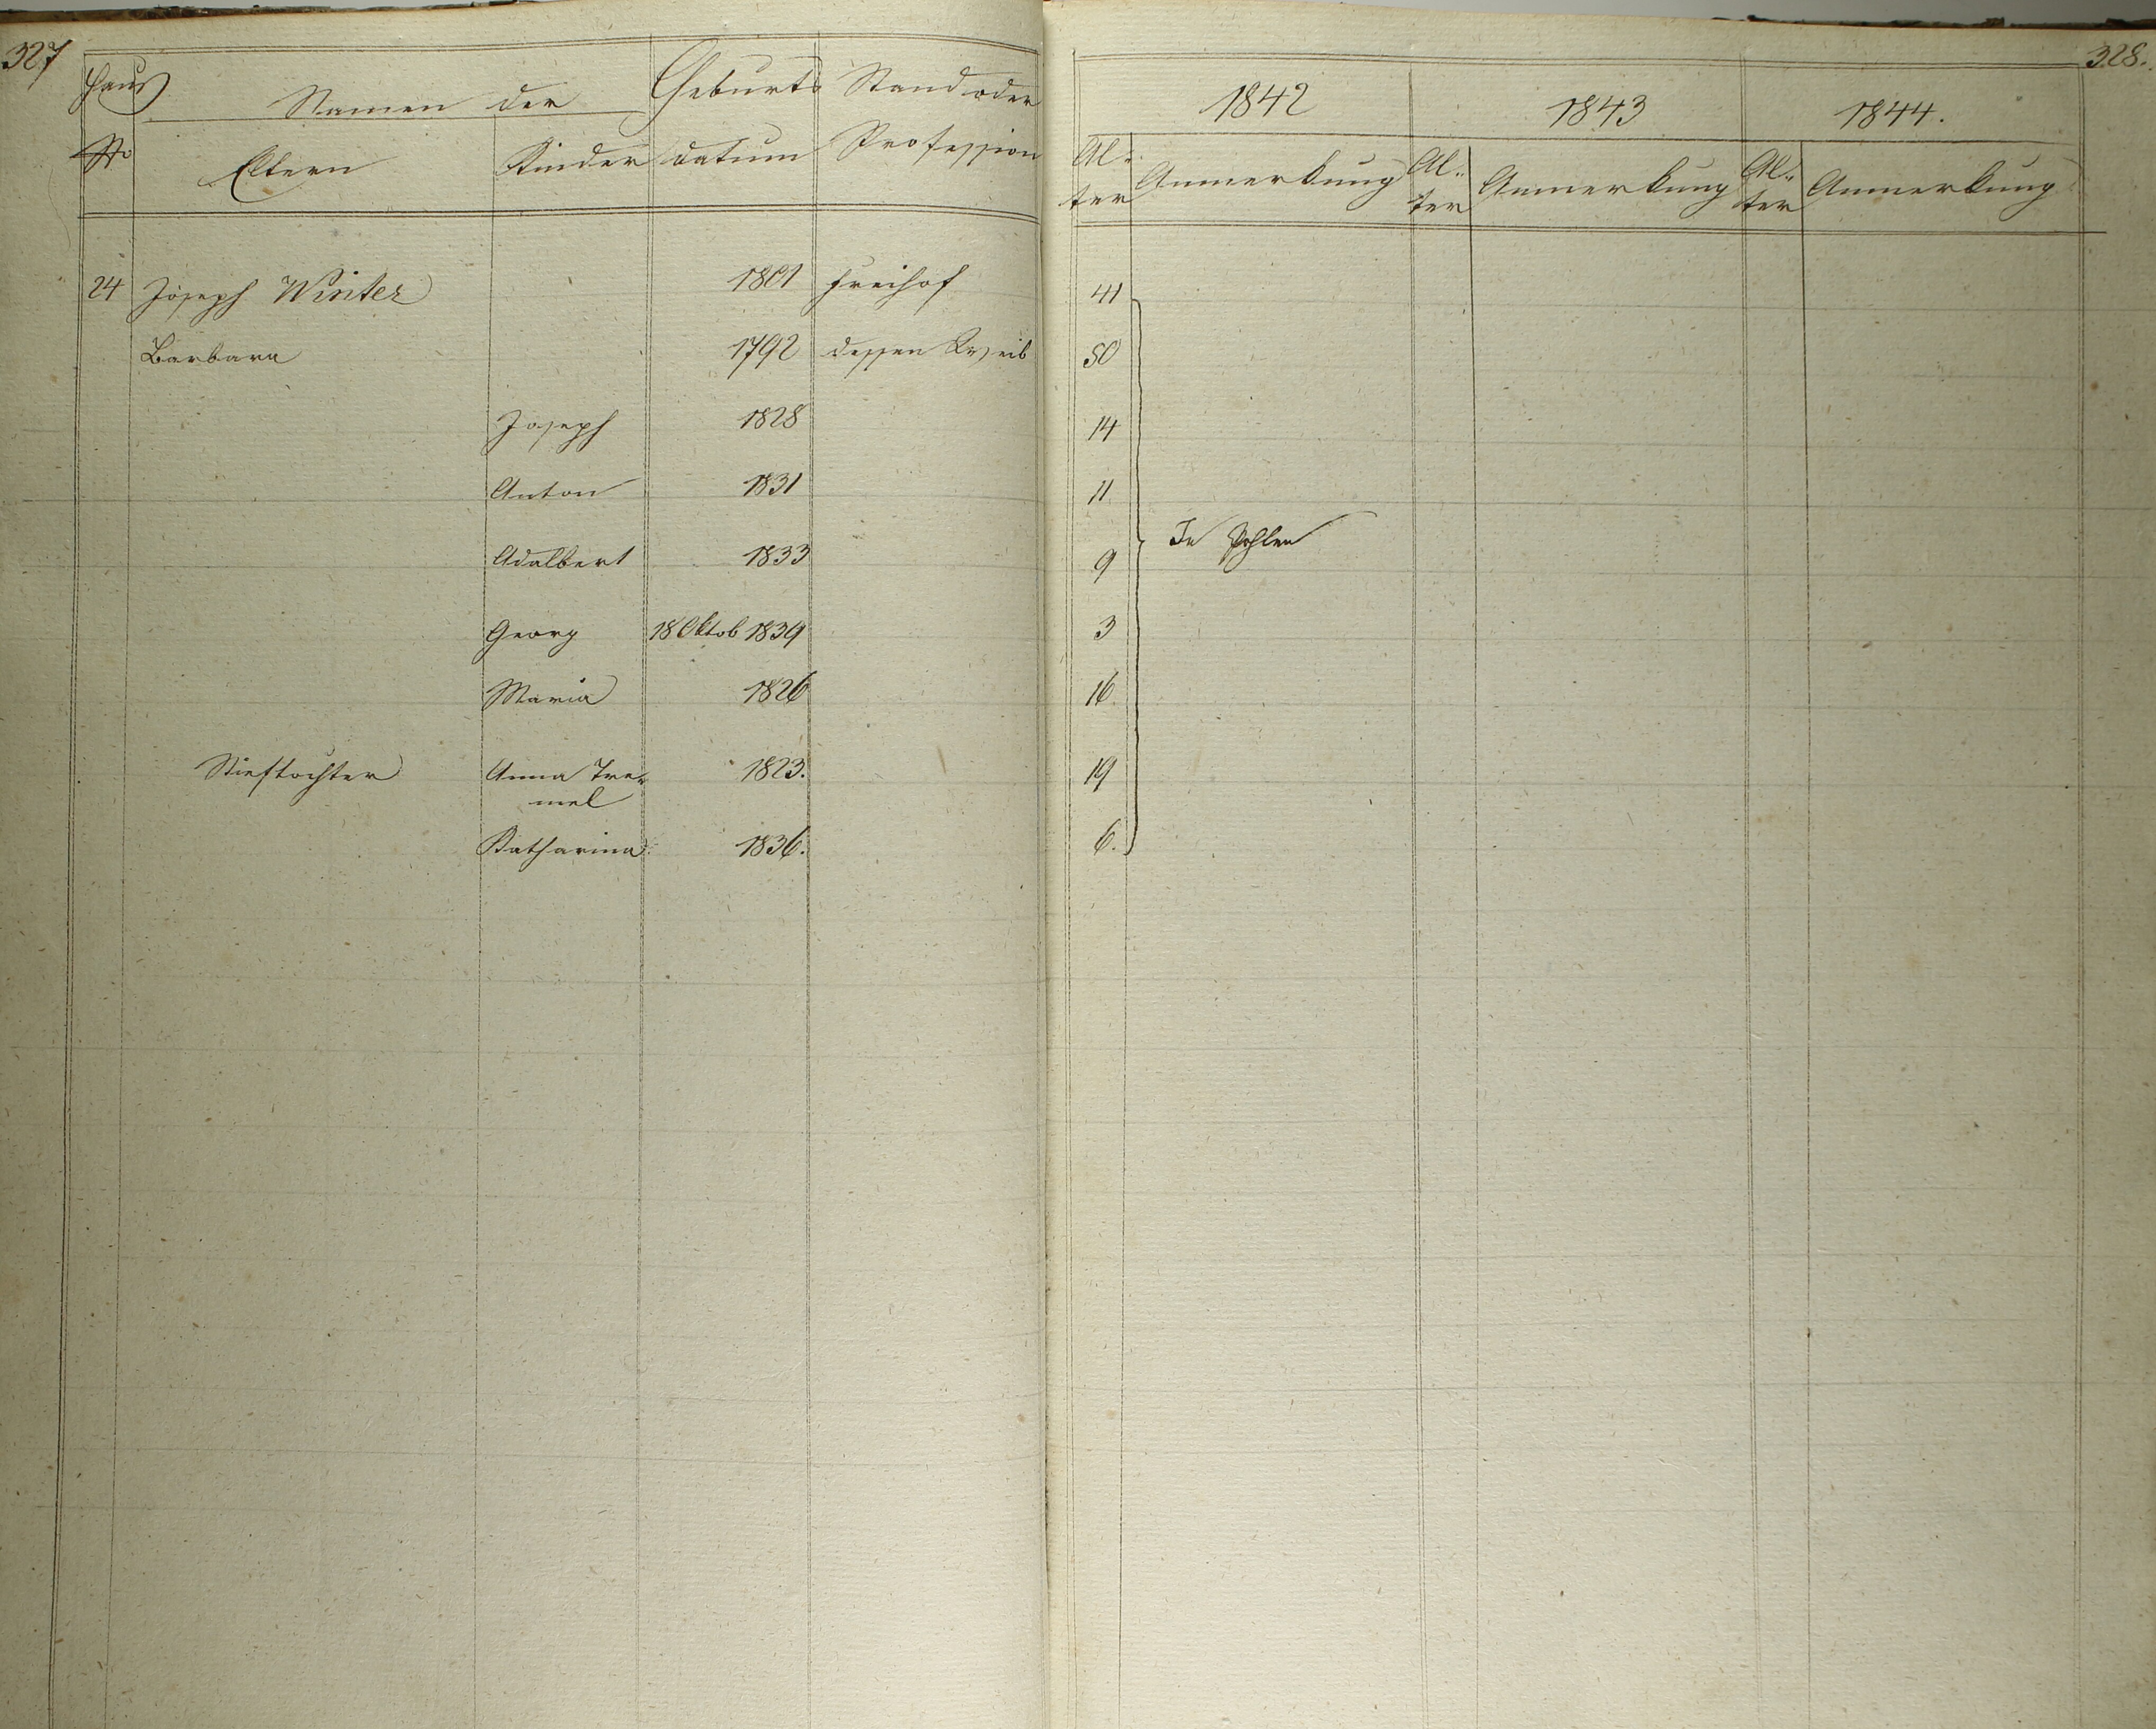 327
328.
Haus Namen der Geburts Stand oder
No Eltern Kinder datum Profession
1842 1843 1844.
Al- Anmerkung Al- Anmerkung Al- Anmerkung
ter ter ter
24 Joseph Winter 1801 Freihof 41
Barbara 1792 dessen Weib 50
Joseph 1828 14
Anton 1831 11
In Pohlen
Adalbert 1833 9
Georg 18 Oktob 1839 3
Maria 1826 16
Stieftochter Anna Tre- 1823. 19
mel
Katharina 1836. 6.